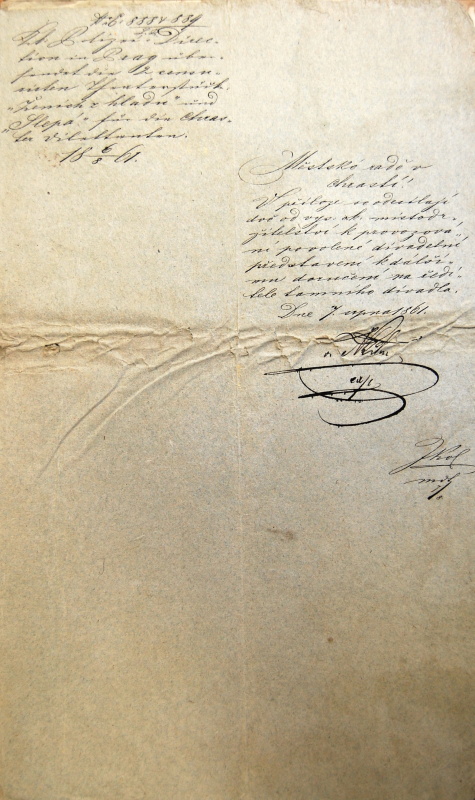 K. k. Polizei-Direc-
tion in Prag über-
sendet die 2 censu-
rirten Theaterstücke
"Ženich z hladu" und
"Slepá" für die Chras-
ter Dilettanten.
18 6/8 61.
Městské radě v
Chrasti!
V příloze se odesílají
dvě od vys. ck. místodr-
žitelství k provozová-
ní povolené divadelní
představení k další-
mu doručení na ředi-
tele tamního divadla.
Dne 7. srpna 1861.